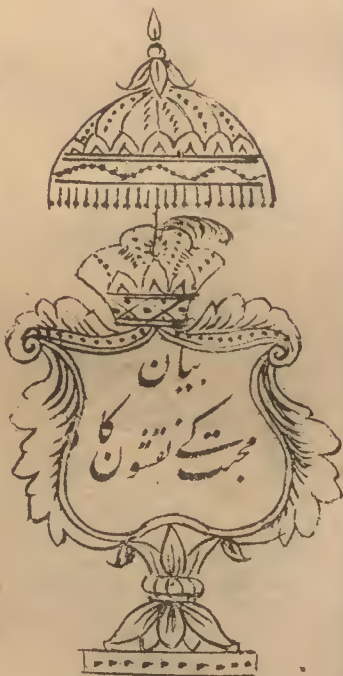 بیان
محبت کے نقشون کا